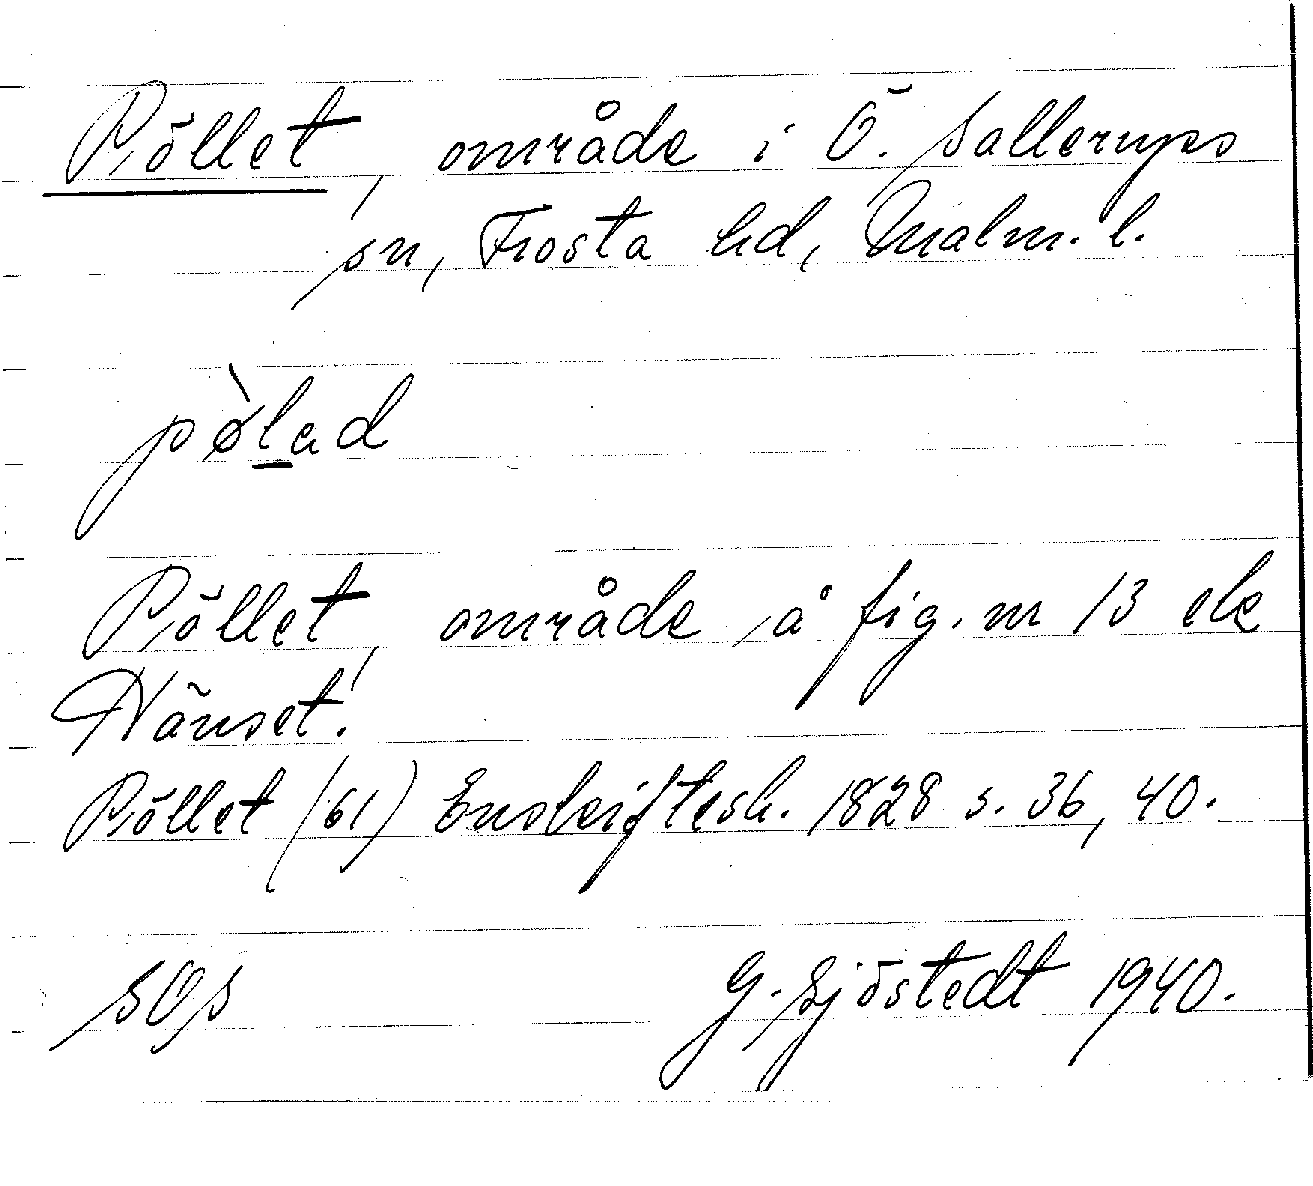 Pöllet, område i Ö. Sallerups
sn, Frosta hd, Malm. l.
pø̀lad
Pöllet, område å fig. nr 13 ek
Hänset!
Pöllet (61) Enskiftesh. 1828 s. 36, 40.
G. Sjöstedt 1940.